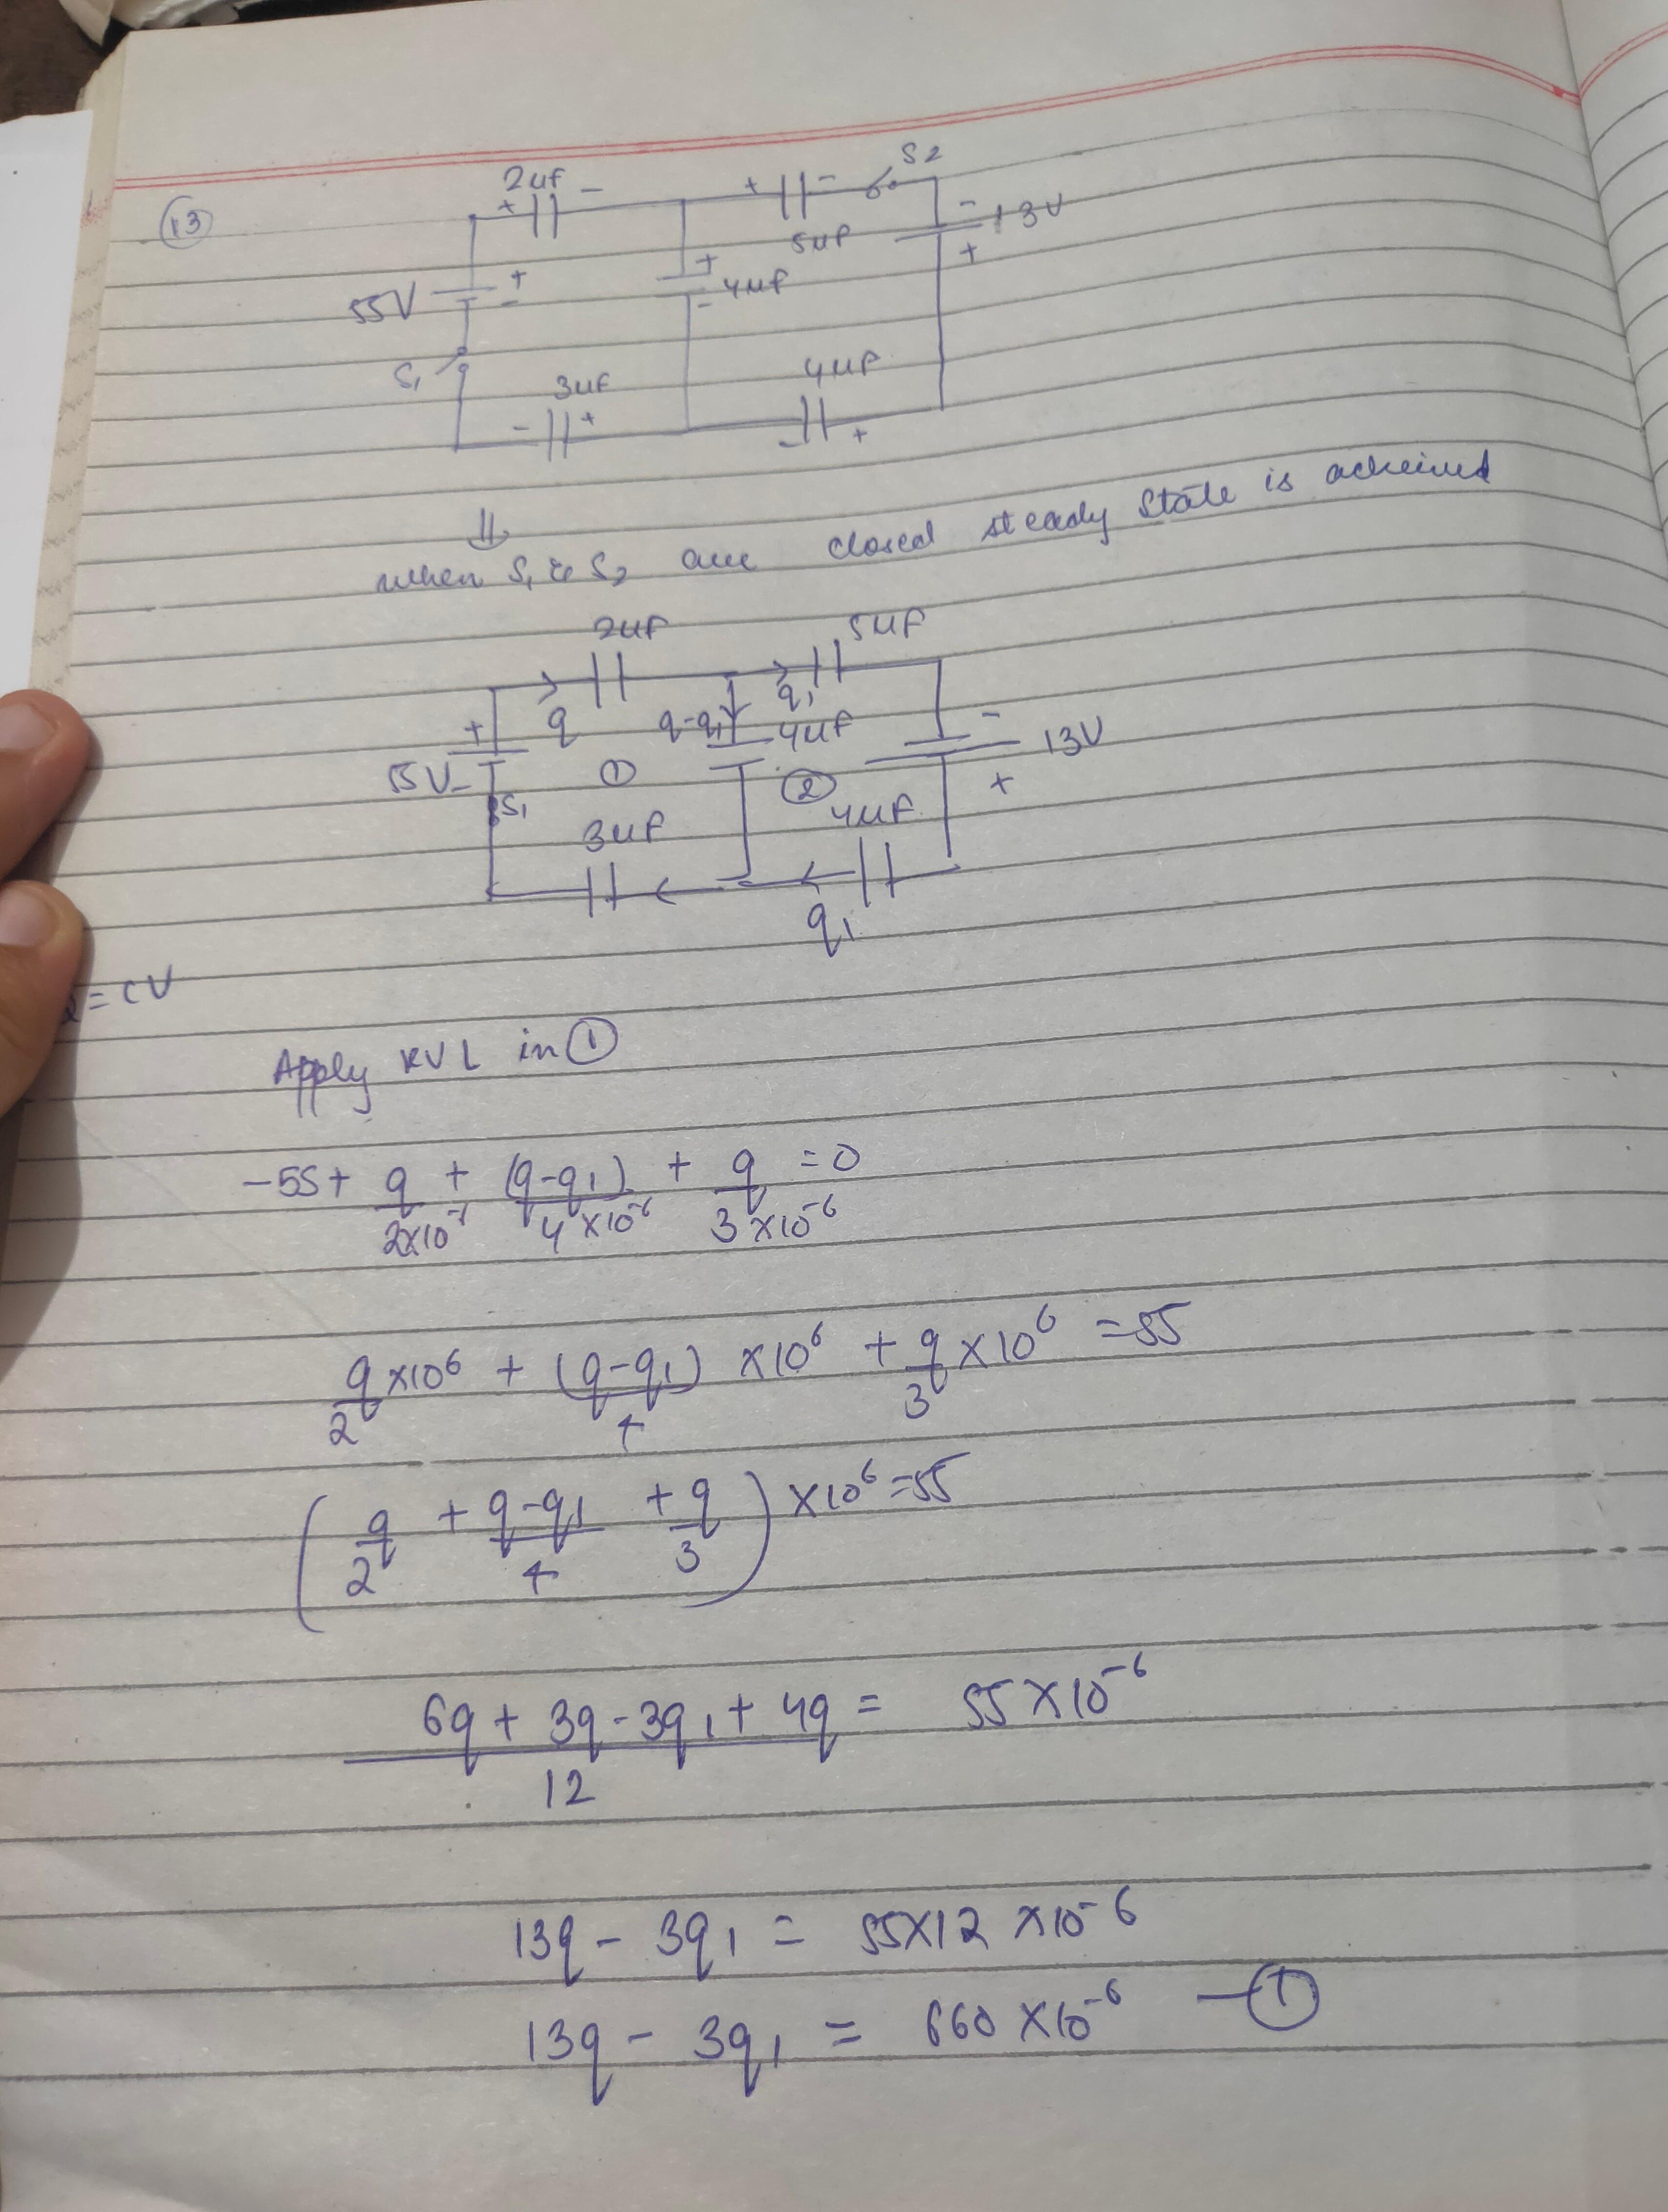 (13)
2uf
+ -
+ -
S2
5uf
-
13V
+
55V
+
-
+
4uf
-
S1
3uf
- +
4uf
- +
⇓
when S1 & S2 are closed steady state is acheived
2uf
5uf
q
q1
q-q1
4uf
+
55V
-
S1
①
②
-
13V
+
3uf
4uf
q1
= CV
Apply KVL in ①
-55 + q/2×10^-6 + (q-q1)/4×10^-6 + q/3×10^-6 = 0
q/2 ×10^6 + (q-q1)/4 ×10^6 + q/3 ×10^6 = 55
(q/2 + q-q1/4 + q/3) ×10^6 = 55
6q + 3q - 3q1 + 4q / 12 = 55×10^-6
13q - 3q1 = 55×12×10^-6
13q - 3q1 = 660×10^-6 — ①